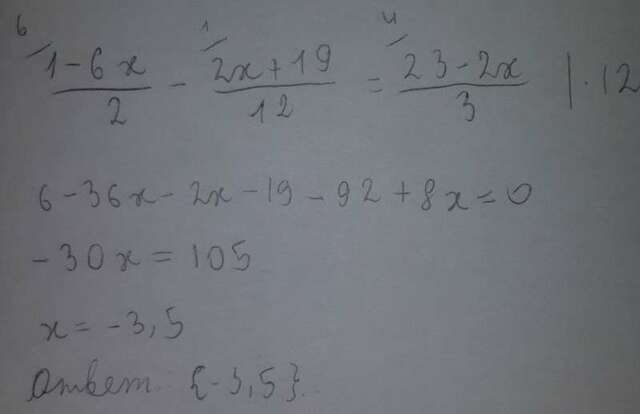 6 1 4
(1-6x)/2 - (2x+19)/12 = (23-2x)/3 | · 12
6-36x-2x-19-92+8x=0
-30x=105
x=-3,5
Ответ: {-3,5}.